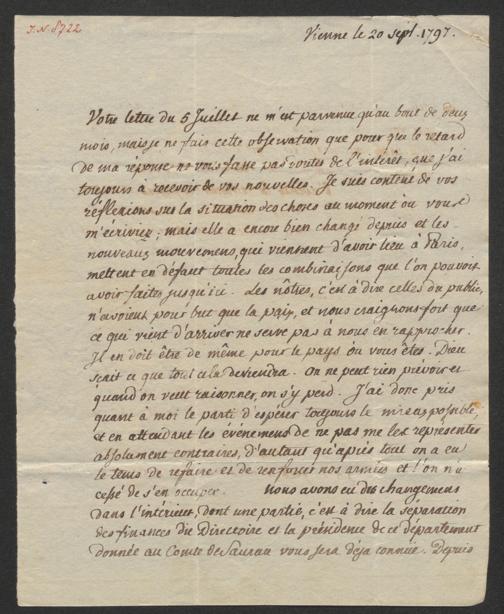 I.N. 8722
Vienne le 20 sept. 1797.
Votre lettre du 5 Juillet ne m'est parvenue qu'au bout de deux
mois, mais je ne fais cette observation que pour que le retard
de ma réponse ne vous fasse pas douter de l'intérêt, que j'ai
toujours à recevoir de vos nouvelles. Je suis content de vos
réflexions sur la situation des choses au moment où vous
m'écriviez; mais elle a encore bien changé depuis et les
nouveaux mouvemens, qui viennent d'avoir lieu à Paris,
mettent en défaut toutes les combinaisons que l'on pouvoit
avoir faites jusqu'ici. Les nôtres, c'est à dire celles du public,
n'avoient pour but que la paix, et nous craignons fort que
ce qui vient d'arriver ne serve pas à nous en rapprocher.
Il en doit être de même pour le pays où vous êtes. Dieu
sçait ce que tout cela deviendra. On ne peut rien prévoir et
quand on veut raisonner, on s'y perd. J'ai donc pris
quant à moi le parti d'espérer toujours le mieux possible,
et en attendant les événemens de ne pas me les représenter
absolument contraires, d'autant qu'après tout on a eu
le tems de refaire et de renforcer nos armées et l'on n'a
cessé de s'en occuper. Nous avons eu des changemens
dans l'intérieur, dont une partie, c'est à dire la séparation
des finances du Directoire et la présidence de ce département
donnée au Comte de Saurau vous sera déja connue. Depuis